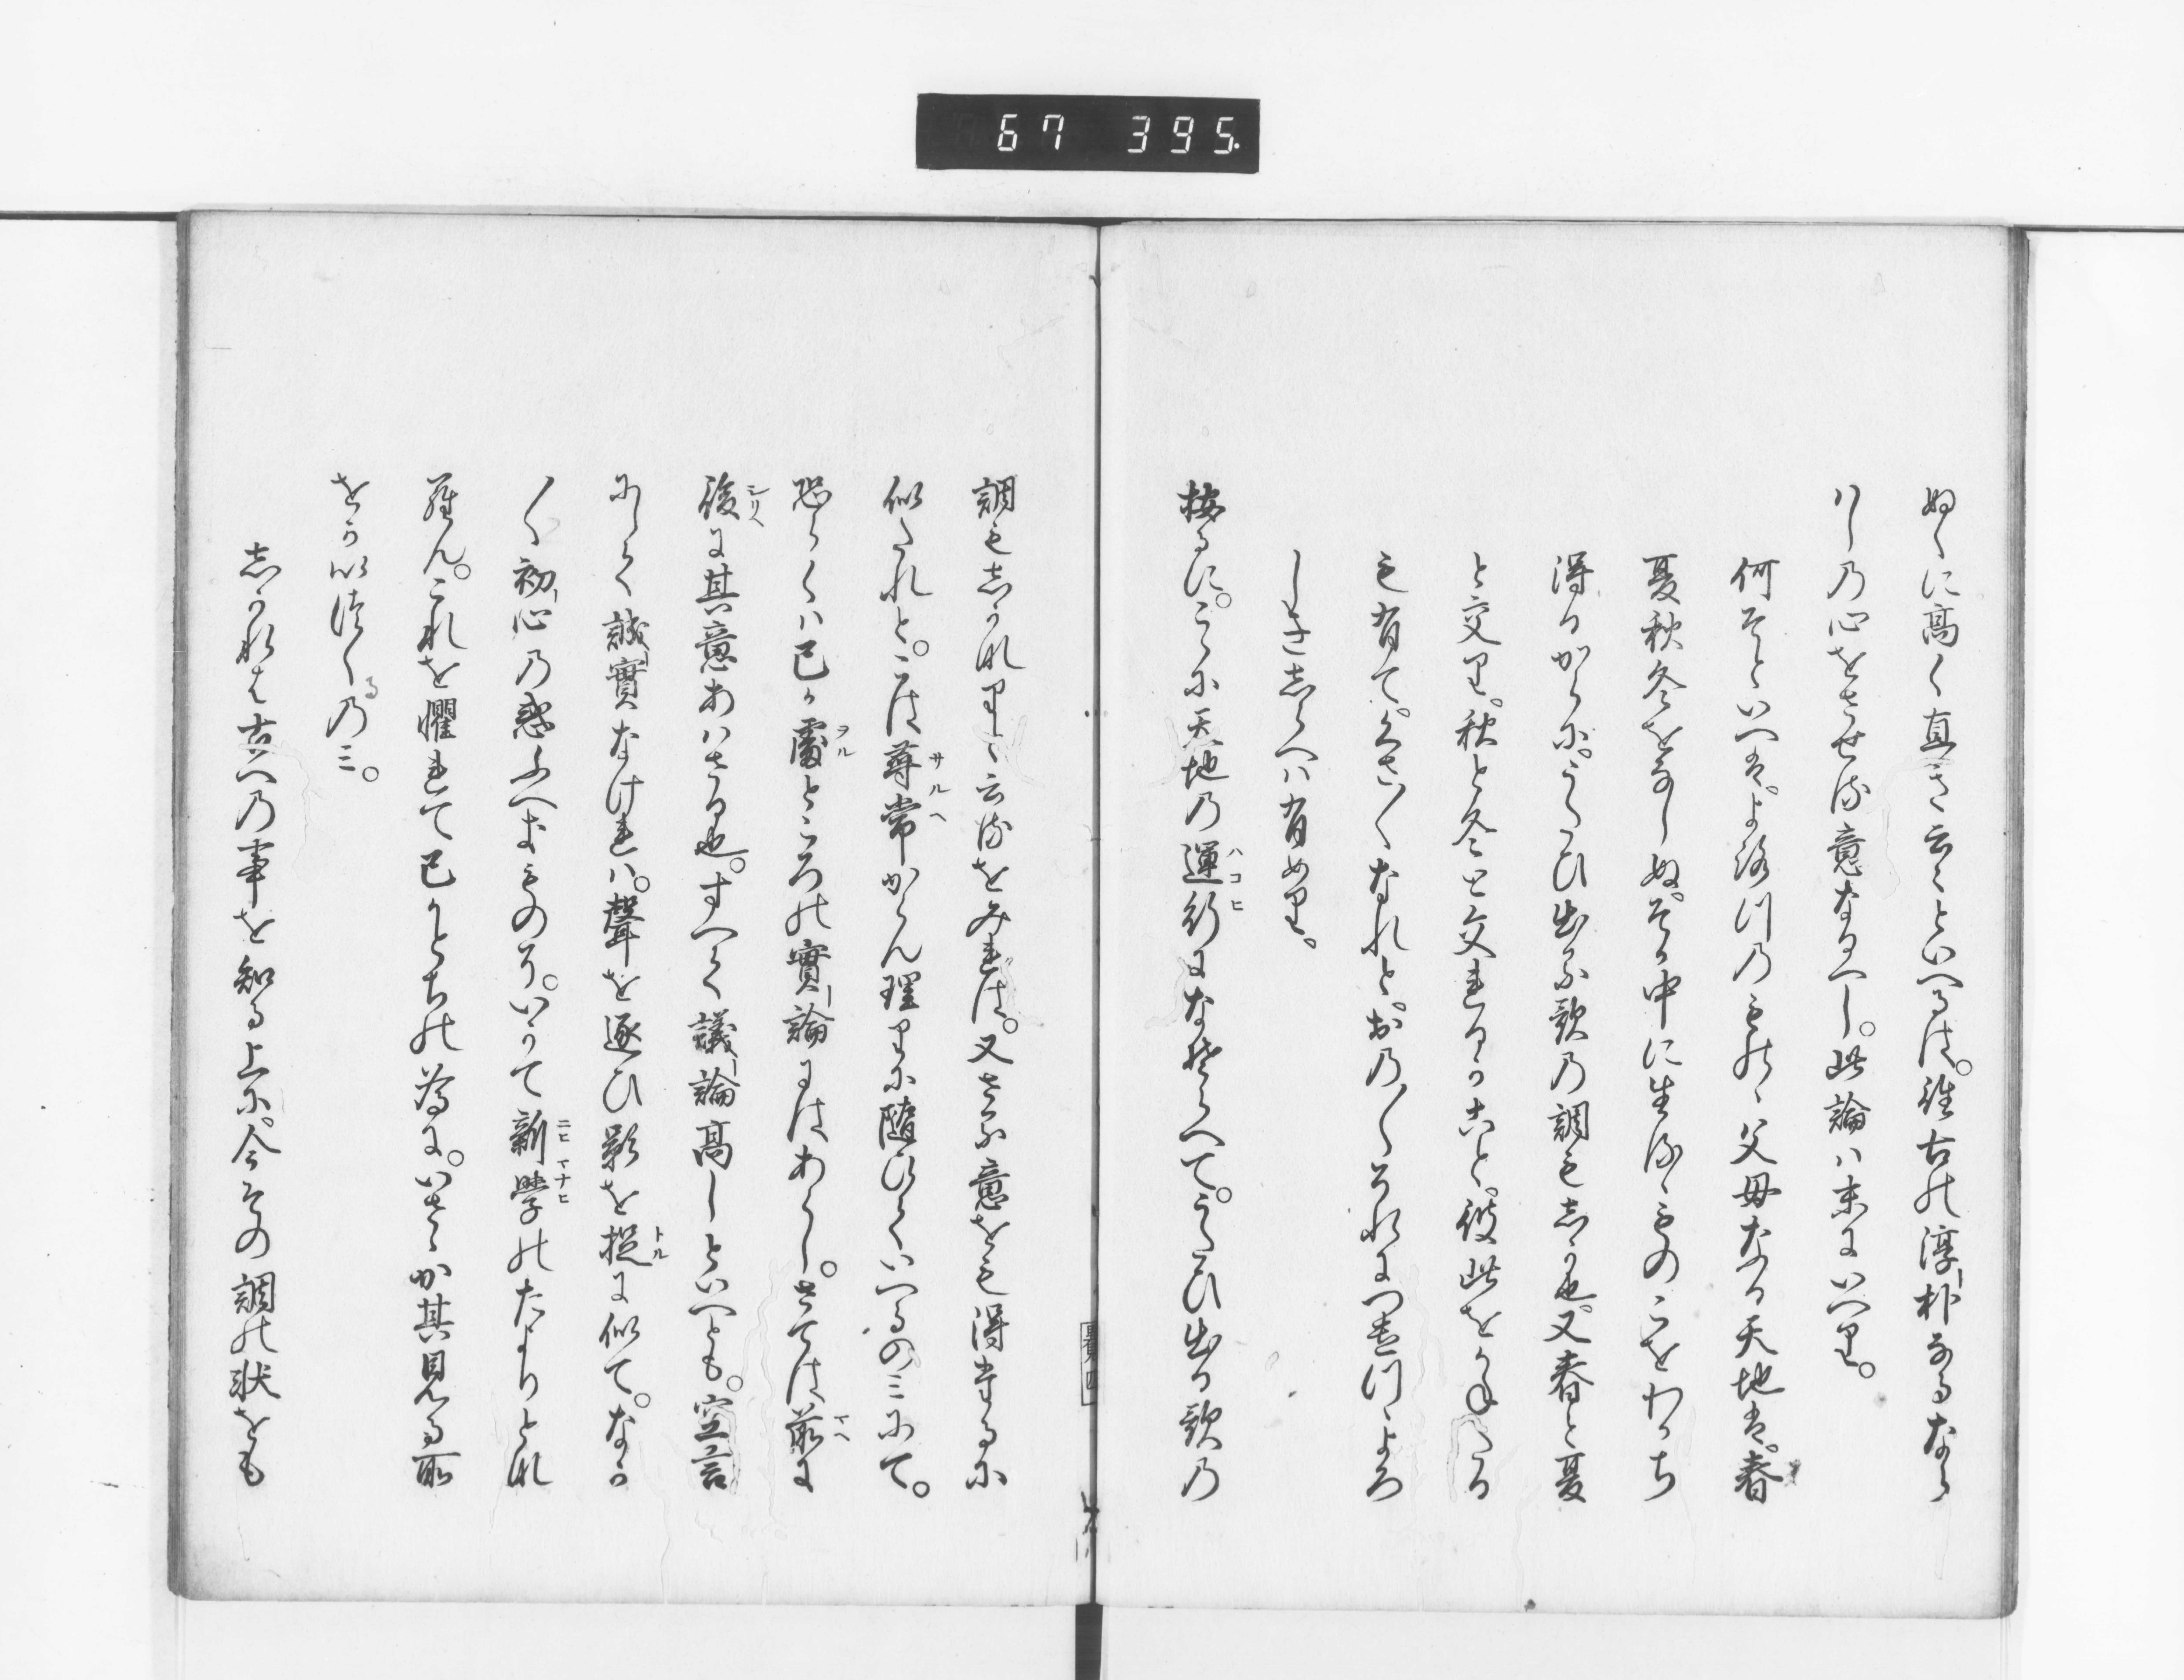 67 395.
ぬゝに高く直き云々といへるは。往古の淳朴なるなら
ハしの心をさせる意なるへし。此論ハ末にいへり。
何そといへは。よろつのものゝ父母なる天地は。春
夏秋冬をなしぬ。そか中に生るゝものこをわかち
得るからに。うたひ出る歌の調もしか也。又春と夏
と交り。秋と冬と交れるかこと。彼此をかねたる
も有て。くさ〳〵なれと。おの〳〵それにつけつゝよろ
しきしらへハ有めり。
按るに。こゝに天地の運行になそらへて。うたひ出る歌の
調もしかなりと云るをみれは。又させる意をも得たるに
似たれと。こは尋常からん理りに随ひていへるのミにて。
恐らくハ己か處ところの實論にはあらし。さては前に
後に其意あハさる也。すへて議論高しといへとも。空言
にして誠實なけれハ。聲を逐ひ影を捉に似て。なか
〳〵初心の惑ふへきものそ。いかて新學のたよりとな
らん。これを懼れて己かとちの為に。いさゝか其見る所
をかいつくるのミ。
しかれは古への事を知る上に。今その調の状をも